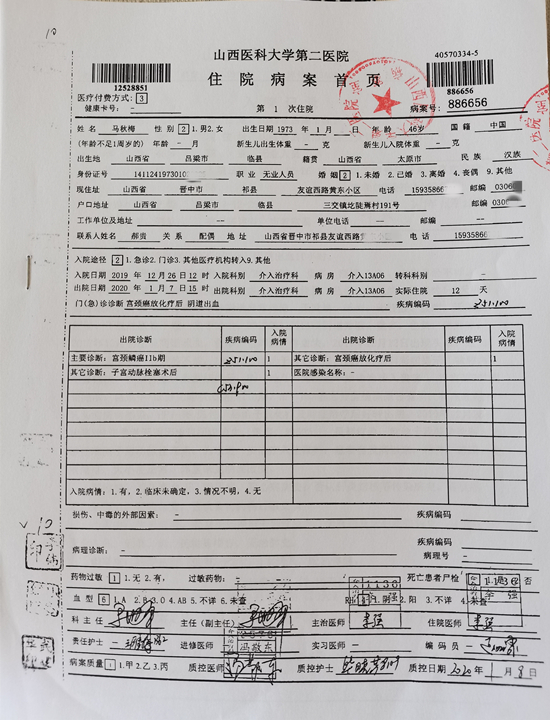 山西医科大学第二医院
40570334-5
住院病案首页
12528851
886656
医疗付费方式: 3
健康卡号: -
第 1 次住院
病案号: 886656
姓名 马秋梅 性别 2 1.男2.女 出生日期 1973 年 1 月 日 年龄 46岁 国籍 中国
(年龄不足1周岁的) 年龄 - 月 新生儿出生体重 - 克 新生儿入院体重 - 克
出生地 山西省 吕梁市 临县 籍贯 山西省 太原市 民族 汉族
身份证号 1411241973010 职业 无业人员 婚姻 2 1.未婚 2.已婚 3.离婚 4.丧偶 9.其他
现住址 山西省 晋中市 祁县 友谊西路黄东小区 电话 1593586 邮编 0306
户口地址 山西省 吕梁市 临县 三交镇圪陡焉村191号 邮编 030
工作单位及地址 -- 单位电话 -- 邮编 --
联系人姓名 郝贵 关系 配偶 地址 山西省晋中市祁县友谊西路 电话 15935866
入院途径 2 1.急诊2.门诊3.其他医疗机构转入9.其他
入院日期 2019 年 12 月 26 日 12 时 入院科别 介入治疗科 病房 介入13A06 转科科别 -
出院日期 2020 年 1 月 7 日 15 时 出院科别 介入治疗科 病房 介入13A06 实际住院 12 天
门(急)诊诊断 宫颈癌放化疗后 阴道出血 疾病编码
出院诊断 疾病编码 入院病情 出院诊断 疾病编码 入院病情
主要诊断: 宫颈鳞癌IIb期 1 其它诊断: 宫颈癌放化疗后 1
其它诊断: 子宫动脉栓塞术后 1 医院感染名称: -
入院病情: 1.有, 2.临床未确定, 3.情况不明, 4.无
损伤、中毒的外部因素: - 疾病编码
病理诊断: - 疾病编码
病理号 -
药物过敏 1 1.无 2.有, 过敏药物: - 死亡患者尸检
血型 6 1.A 2.B 3.O 4.AB 5.不详 6.未查
科主任 主任(副主任) 主治医师 李强 住院医师 李强
责任护士 进修医师 冯敬东 实习医师 - 编码员
病案质量 1 1.甲 2.乙 3.丙 质控医师 质控护士 质控日期 2020 年 1 月 8 日